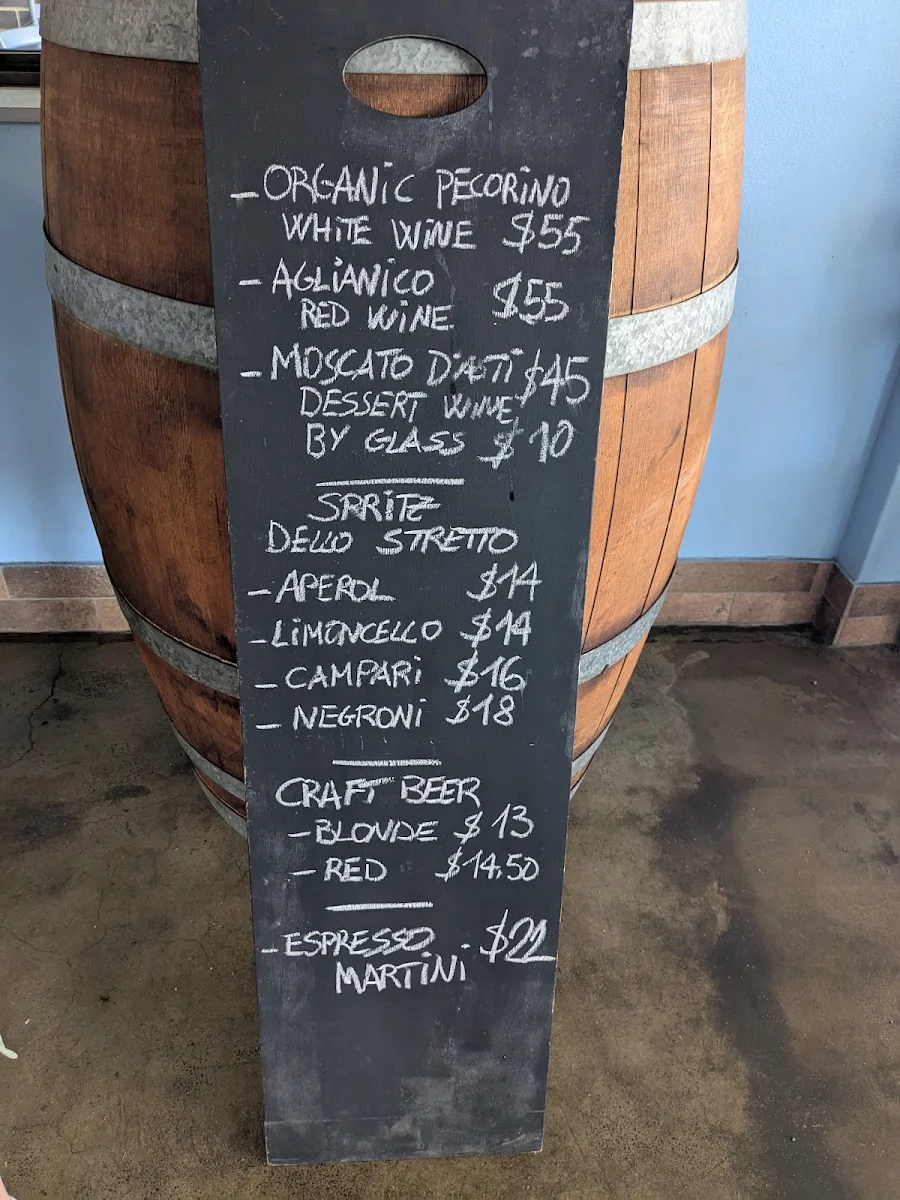 - ORGANiC PECORiNO
WHiTE WiNE $55
- AGLiANiCO
RED WiNE $55
- MOSCATO D'ASTi $45
DESSERT WINE
BY GLASS $10
SPRiTZ
DELLO STRETTO
- APEROL $14
- LiMONCELLO $14
- CAMPARi $16
- NEGRONi $18
CRAFT BEER
- BLONDE $13
- RED $14,50
- ESPRESSO $22
MARTiNi